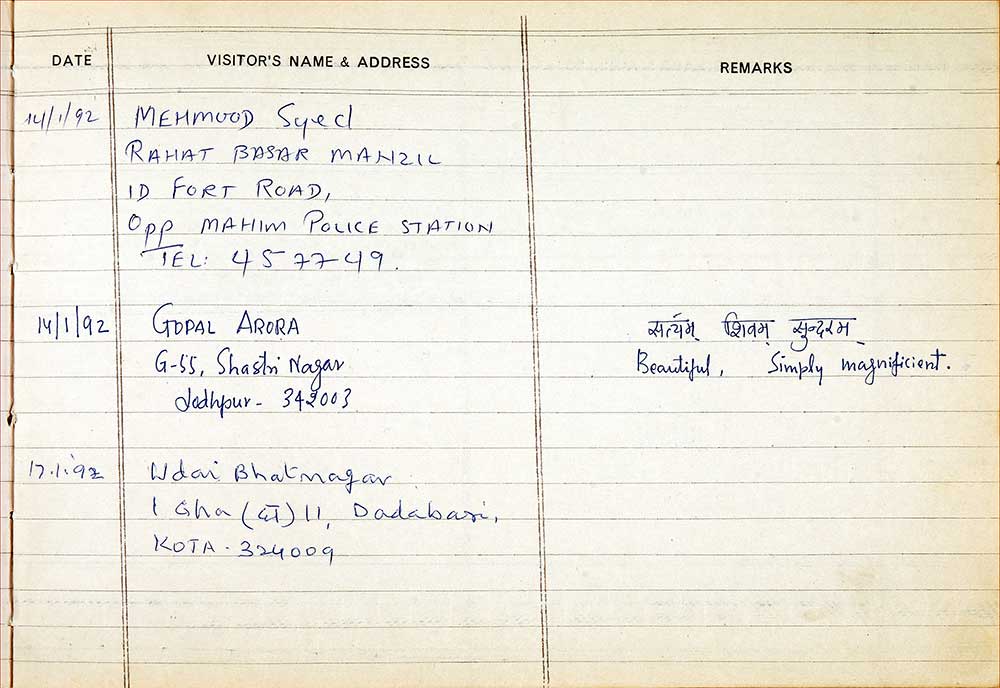 DATE VISITOR'S NAME & ADDRESS REMARKS
14/1/92 MEHMOOD Syed
RAHAT BASAR MANZIL
1D FORT ROAD,
Opp MAHIM POLICE STATION
TEL: 457749.
14/1/92 GOPAL ARORA सर्त्यम् शिवम् सुन्दरम्
G-55, Shastri Nagar Beautiful, Simply magnificient.
Jodhpur - 342003
17.1.92 Udai Bhatnagar
1 Gha (घ) 11, Dadabari,
KOTA - 324009